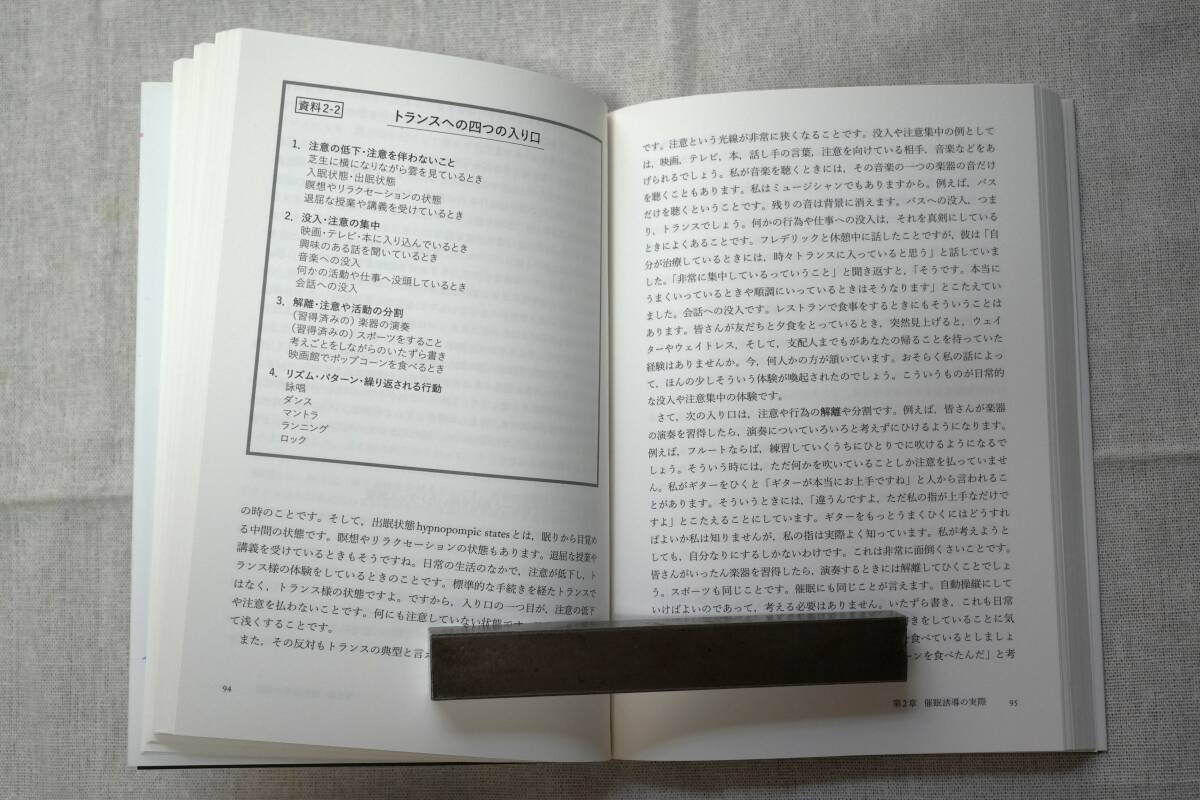 資料2-2
トランスへの四つの入り口
1. 注意の低下・注意を伴わないこと
芝生に横になりながら雲を見ているとき
入眠状態・出眠状態
瞑想やリラクセーションの状態
退屈な授業や講義を受けているとき
2. 没入・注意の集中
映画・テレビ・本に入り込んでいるとき
興味のある話を聞いているとき
音楽への没入
何かの活動や仕事へ没頭しているとき
会話への没入
3. 解離・注意や活動の分割
(習得済みの) 楽器の演奏
(習得済みの) スポーツをすること
考えごとをしながらのいたずら書き
映画館でポップコーンを食べるとき
4. リズム・パターン・繰り返される行動
詠唱
ダンス
マントラ
ランニング
ロック
の時のことです。そして,出眠状態hypnopompic statesとは,眠りから目覚め
る中間の状態です。瞑想やリラクセーションの状態もあります。退屈な授業や
講義を受けているときもそうですね。日常の生活のなかで,注意が低下し,ト
ランス様の体験をしているときのことです。標準的な手続きを経たトランスで
はなく,トランス様の状態ですよ。ですから,入り口の一つ目が,注意の低下
や注意を払わないことです。何にも注意していない状態です。
て浅くすることです。
また,その反対もトランスの典型と言え
94
です。注意という光線が非常に狭くなることです。没入や注意集中の例として
は,映画,テレビ,本,話し手の言葉,注意を向けている相手,音楽などをあ
げられるでしょう。私が音楽を聴くときには,その音楽の一つの楽器の音だけ
を聴くこともあります。私はミュージシャンでもありますから。例えば,バス
だけを聴くということです。残りの音は背景に消えます。バスへの没入,つま
り,トランスでしょう。何かの行為や仕事への没入は,それを真剣にしている
ときによくあることです。フレデリックと休憩中に話したことですが,彼は「自
分が治療しているときには,時々トランスに入っていると思う」と話していま
した。「非常に集中しているっていうこと」と聞き返すと,「そうです。本当に
うまくいっているときや順調にいっているときはそうなります」とこたえてい
ました。会話への没入です。レストランで食事をするときにもそういうことは
あります。皆さんが友だちと夕食をとっているとき,突然見上げると,ウェイ
ターやウェイトレス,そして,支配人までもがあなたの帰ることを待っていた
経験はありませんか。今,何人かの方が頷いています。おそらく私の話によっ
て,ほんの少しそういう体験が喚起されたのでしょう。こういうものが日常的
な没入や注意集中の体験です。
さて,次の入り口は,注意や行為の解離や分割です。例えば,皆さんが楽器
の演奏を習得したら,演奏についていろいろと考えずにひけるようになります。
例えば,フルートならば,練習していくうちにひとりでに吹けるようになるで
しょう。そういう時には,ただ何かを吹いていることしか注意を払っていませ
ん。私がギターをひくと「ギターが本当にお上手ですね」と人から言われるこ
とがあります。そういうときには,「違うんですよ,ただ私の指が上手なだけで
すよ」とこたえることにしています。ギターをもっとうまくひくにはどうすれ
ばよいか私は知りませんが,私の指は実際よく知っています。私が考えようと
しても,自分なりにするしかないわけです。これは非常に面倒くさいことです。
皆さんがいったん楽器を習得したら,演奏するときには解離してひくことでしょ
う。スポーツも同じことです。催眠にも同じことが言えます。自動操縦にして
いけばよいのであって,考える必要はありません。いたずら書き,これも日常
きをしていることに気
を食べているとしましょ
ーンを食べたんだ」と考
第2章 催眠誘導の実際 95